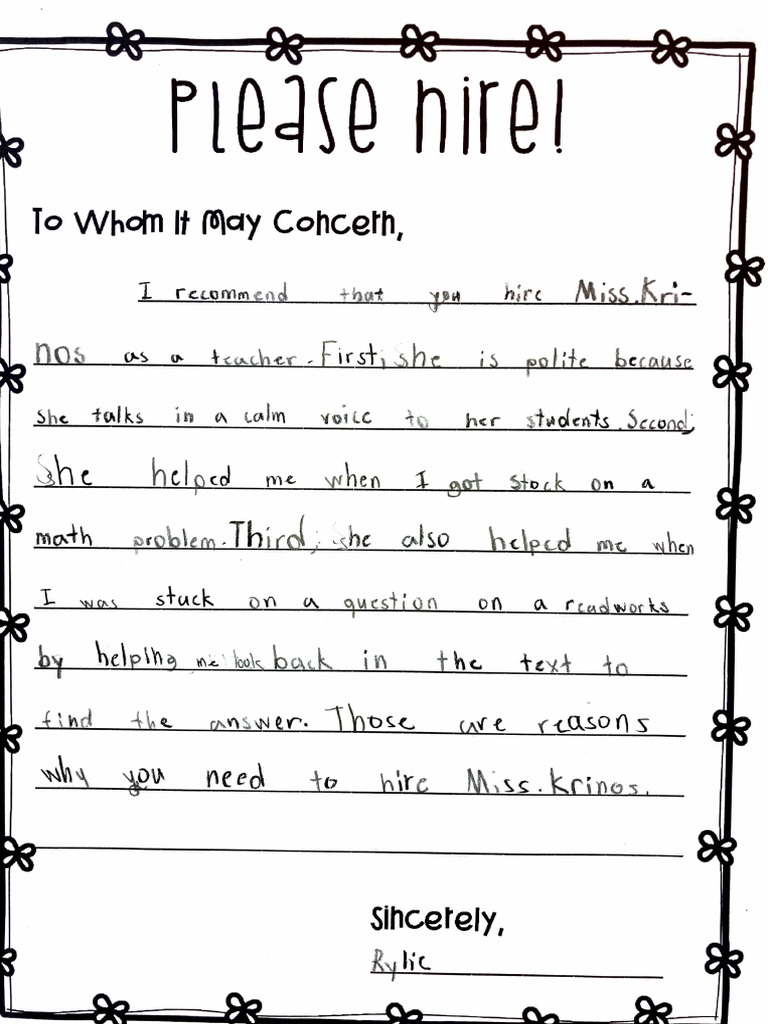 Please Hire!
To Whom It May Concern,
I recommend that you hire Miss.Kri-
nos as a teacher. First, she is polite because
she talks in a calm voice to her students. Second,
She helped me when I got stock on a
math problem. Third, she also helped me when
I was stuck on a question on a readworks
by helping me look back in the text to
find the answer. Those are reasons
why you need to hire Miss.Krinos.
Sincerely,
Rylie